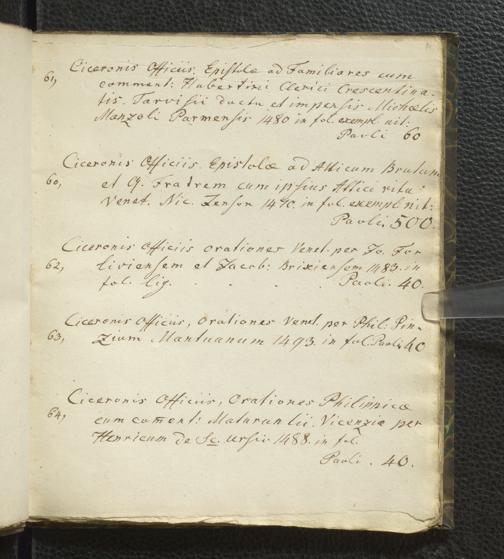 61, Ciceronis Officiis, Epistolæ ad Familiares cum
comment: Hubertini Clerici Crescentina-
tis. Tarvisii ductu et impensis Michaelis
Manzoli Parmensis 1480 in fol. exempl. nit:
Paoli 60
60, Ciceronis Officiis. Epistolæ ad Atticum Brutum
et Q. Fratrem cum ipsius Attici vita:
Venet. Nic. Jenson 1470. in fol. exempl nit:
Paoli. 500.
62, Ciceronis Officiis orationes Venet. per Jo. For-
liviensem et Jacob: Brixiensem 1483. in
fol. lig. . . . . Paoli. 40.
63, Ciceronis Officiis, Orationes Venet. per Phil: Pin-
zium Mantuanum 1493. in fol. Paoli 40
64, Ciceronis Officiis, Orationes Philippicæ
cum coment: Maturantii. Vicenzie per
Henricum de Sc. Ursio 1488. in fol.
Paoli . 40.